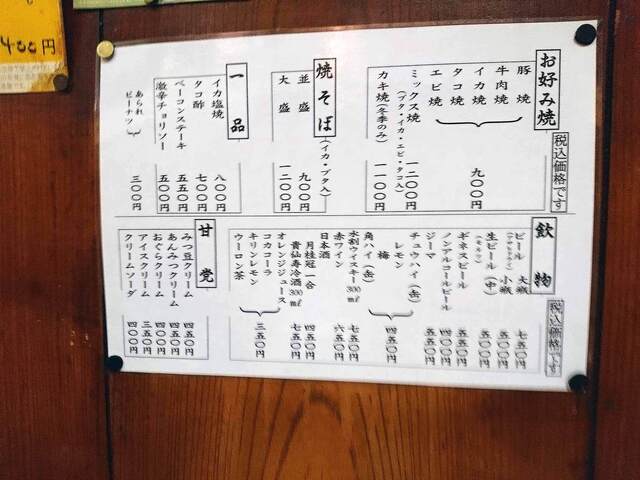 400円
お好み焼
税込価格です
豚焼
牛肉焼
イカ焼
タコ焼
エビ焼
九〇〇円
ミックス焼
(ブタ・イカ・エビ・タコ入)
一二〇〇円
カキ焼(冬季のみ)
一一〇〇円
焼そば
(イカ・ブタ入)
並盛
九〇〇円
大盛
一二〇〇円
一品
イカ塩焼
八〇〇円
タコ酢
七〇〇円
ベーコンステーキ
五五〇円
激辛チョリソー
五〇〇円
あられ
ピーナツ
三〇〇円
飲物
税込価格です
ビール 大瓶
七五〇円
小瓶
五五〇円
生ビール(中)
五〇〇円
ギネスビール
五五〇円
ノンアルコールビール
四〇〇円
ジーマ
五五〇円
チュウハイ(缶)
レモン
梅
角ハイ(缶)
四五〇円
水割ウイスキー300ml
七五〇円
赤ワイン
六五〇円
日本酒
月桂冠一合
四五〇円
貴仙寿冷酒300ml
七五〇円
オレンジジュース
コカコーラ
キリンレモン
ウーロン茶
三五〇円
甘党
みつ豆クリーム
四五〇円
あんみつクリーム
四五〇円
おぐらクリーム
四〇〇円
アイスクリーム
三五〇円
クリームソーダ
四〇〇円